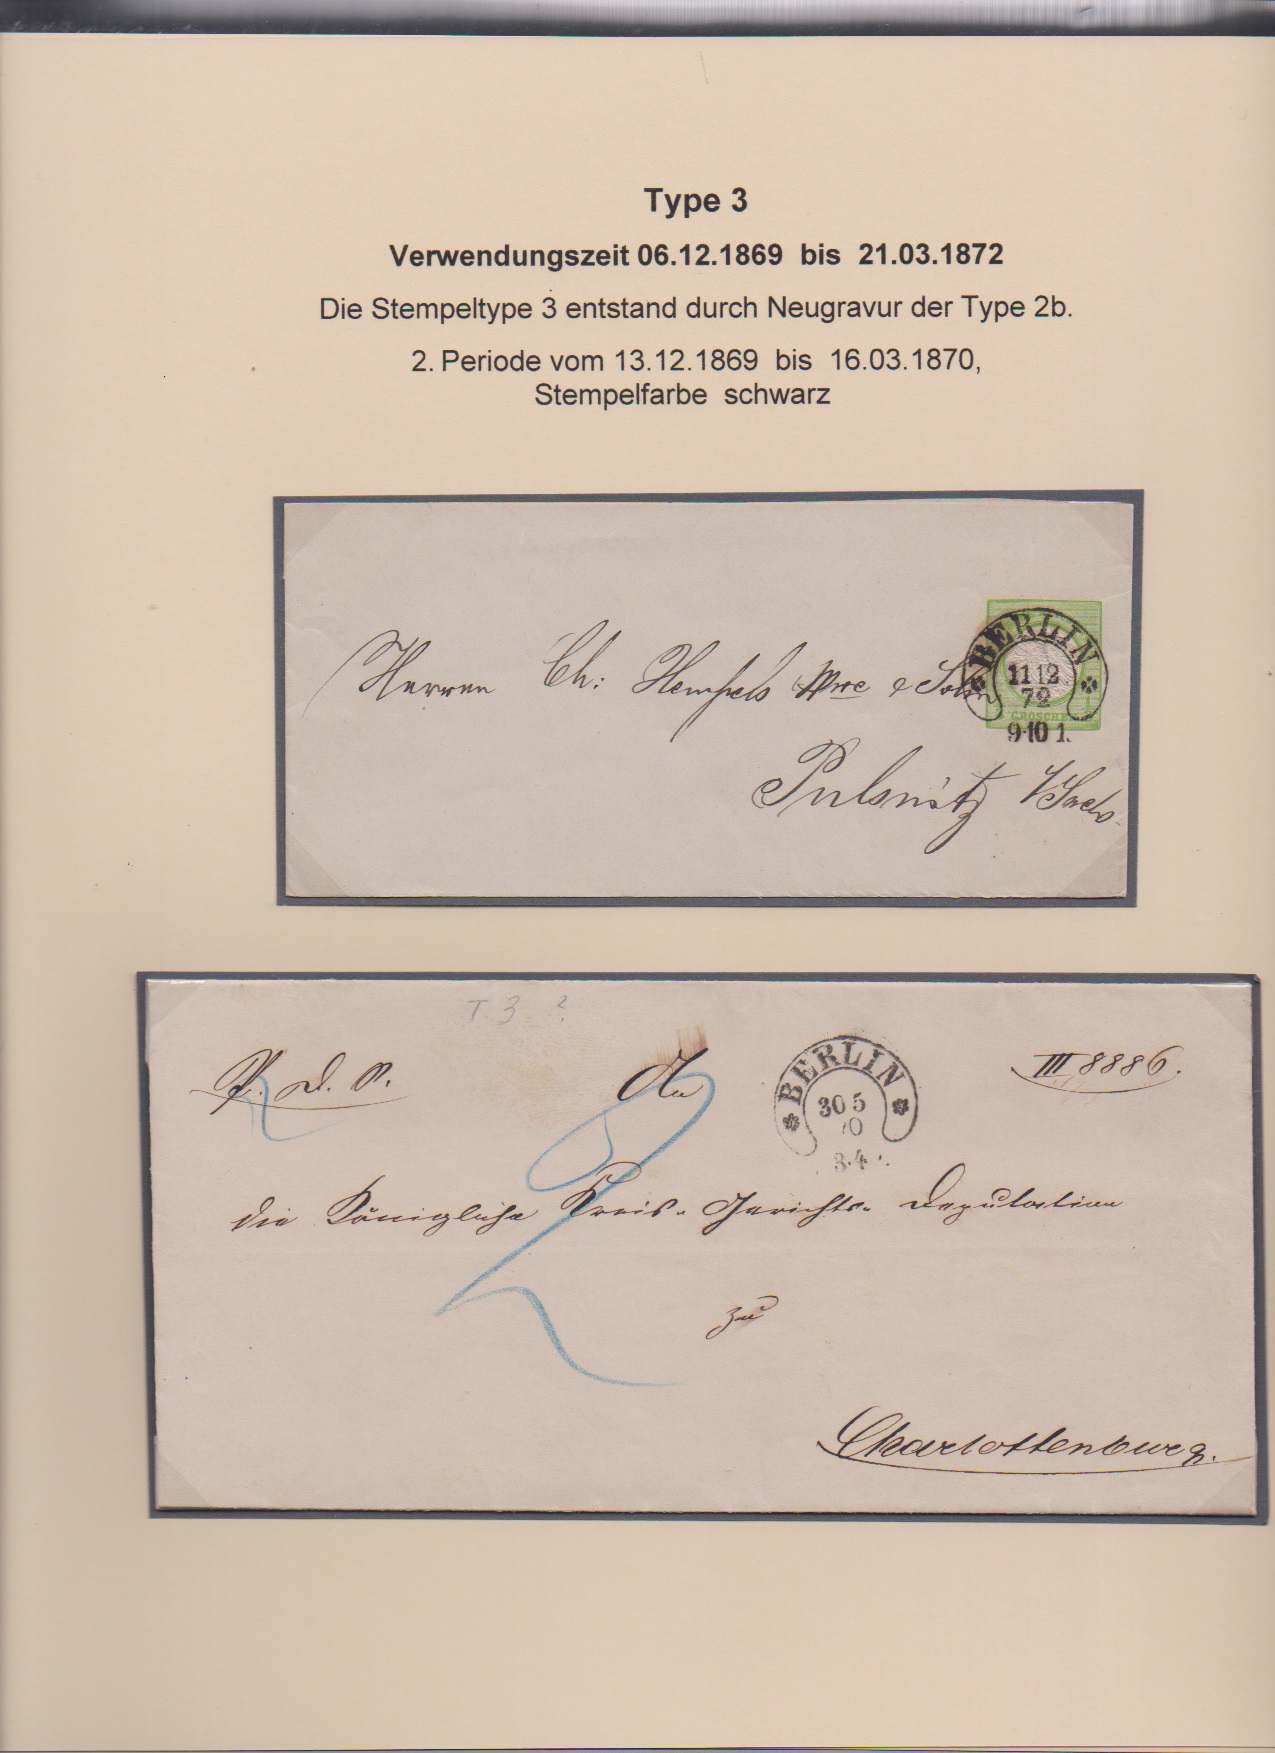 Type 3
Verwendungszeit 06.12.1869 bis 21.03.1872
Die Stempeltype 3 entstand durch Neugravur der Type 2b.
2. Periode vom 13.12.1869 bis 16.03.1870,
Stempelfarbe schwarz
BERLIN
11 12
72
9-10 1.
GROSCHE
Herren Ch: Hempels Wwe & Sohn
Pulsnitz i/Sachs.
T. 3 ?
BERLIN
30 5
70
3-4
III 8886.
An
die Königliche Kreis-Gerichts-Deputation
zu
Charlottenburg.